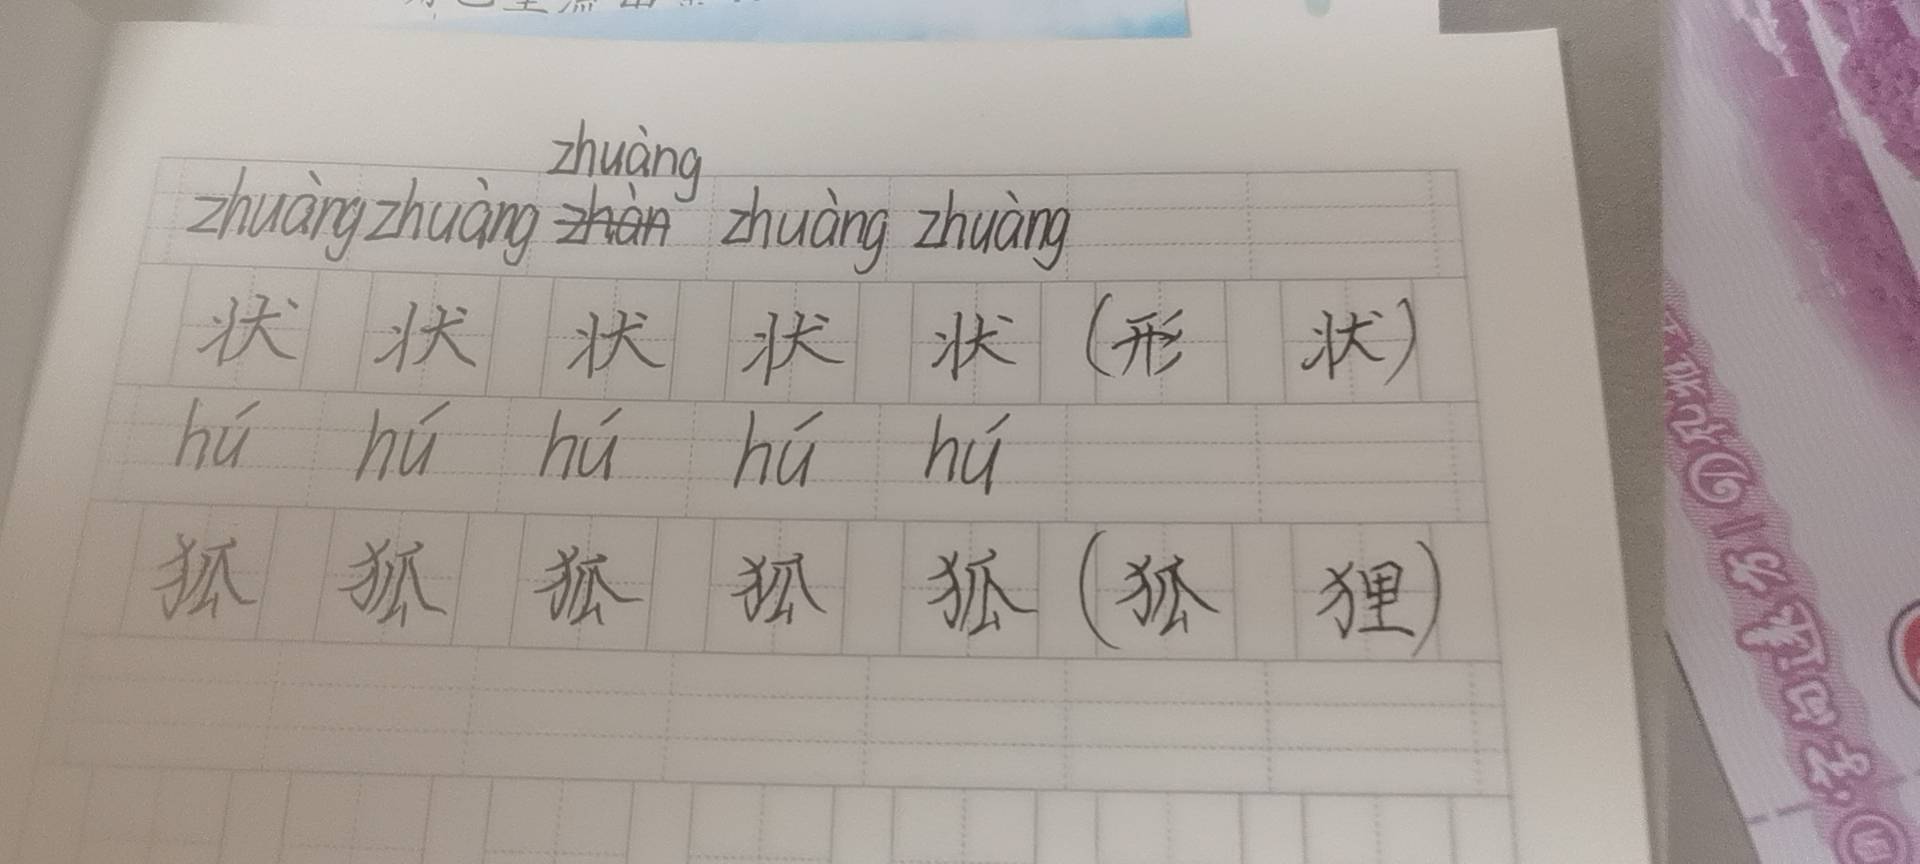 zhuàng
zhuàng zhuàng zhàn zhuàng zhuàng
状 状 状 状 状 (形 状)
hú hú hú hú hú
狐 狐 狐 狐 狐 (狐 狸)